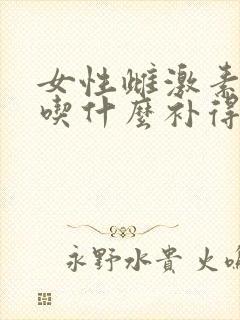 女性雌激素
喫什麼补得
永野水貴 火鳴